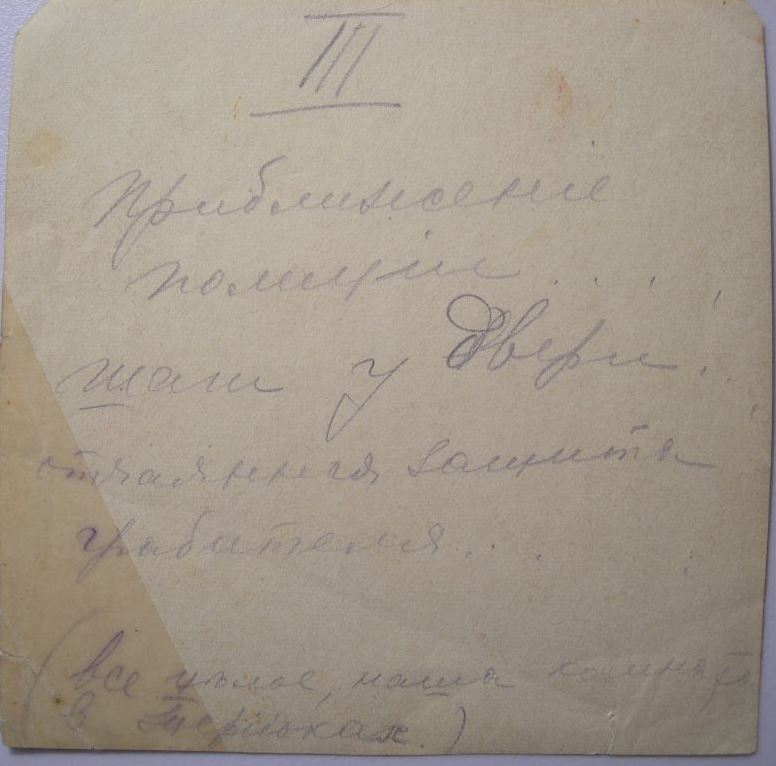 III
Приближеніе
полиціи . . . .
шаги у двери . . .
отчаянная защита
грабителя . . .
(все цѣлое, наша комната
в Теріоках.)